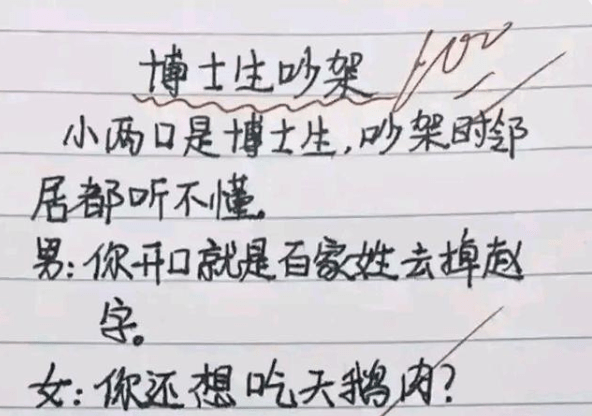 博士生吵架 100
小两口是博士生,吵架时邻
居都听不懂。
男:你开口就是百家姓去掉赵
字。
女:你还想吃天鹅肉?